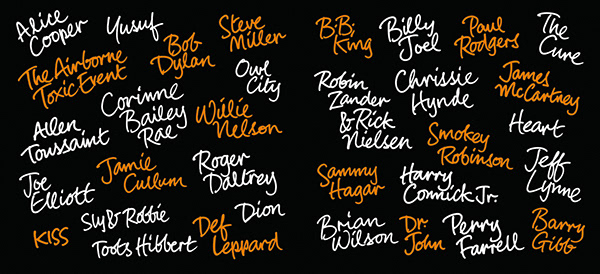 Alice
Cooper
Yusuf
Steve
Miller
Bob
Dylan
The Airborne
Toxic Event
Owl
City
Corinne
Bailey
Rae
Willie
Nelson
Allen
Toussaint
Jamie
Cullum
Roger
Daltrey
Joe
Elliott
Sly & Robbie
Dion
KISS
Toots Hibbert
Def
Leppard
B.B.
King
Billy
Joel
Paul
Rodgers
The
Cure
Robin
Zander
& Rick
Nielsen
Chrissie
Hynde
James
McCartney
Heart
Smokey
Robinson
Sammy
Hagar
Harry
Connick Jr.
Jeff
Lynne
Brian
Wilson
Dr.
John
Perry
Farrell
Barry
Gibb